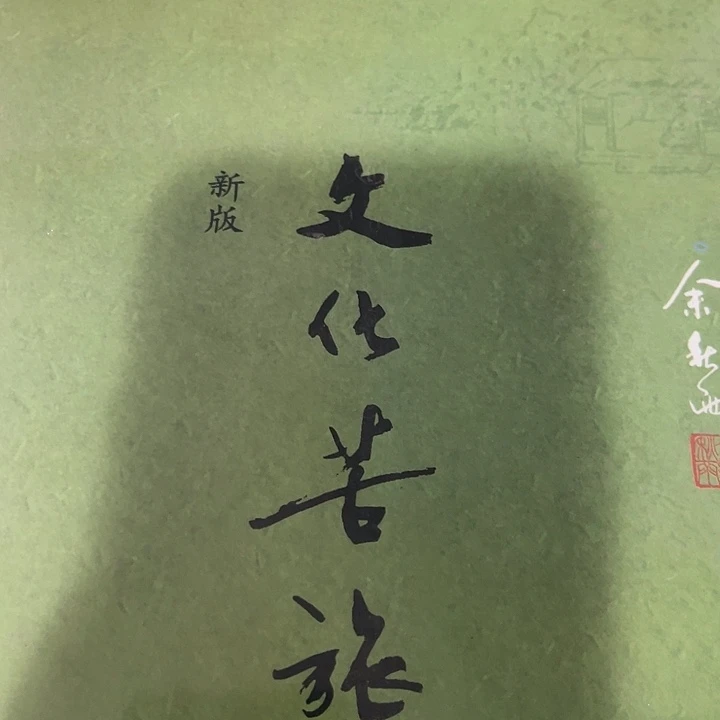 新版
文化苦旅
余秋雨
秋雨